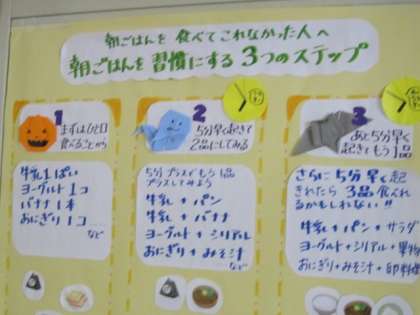 朝ごはんを食べてこれなかった人へ
朝ごはんを習慣にする3つのステップ
1
まずは1品
食べることから
牛乳1ぱい
ヨーグルト1コ
バナナ1本
おにぎり1コ
など
2
5分早く起きて
2品にしてみる
5分プラスでもう1品
プラスしてみよう
牛乳+パン
牛乳+バナナ
ヨーグルト+シリアル
おにぎり+みそ汁
など
3
あと5分早く
起きてもう1品
さらに5分早く起
きれたら3品食べれ
るかもしれない!!
牛乳+パン+サラダ
ヨーグルト+シリアル+果物
おにぎり+みそ汁+卵料理